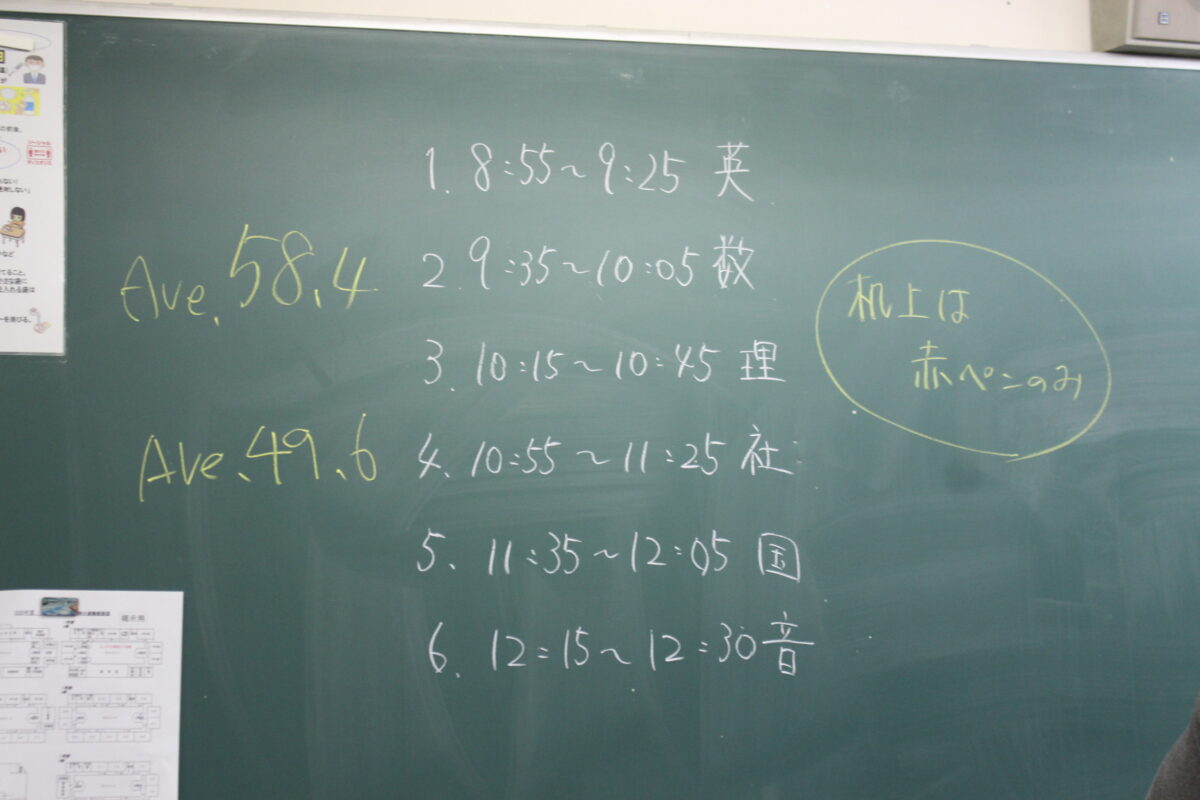 1. 8:55~9:25 英
2. 9:35~10:05 数
3. 10:15~10:45 理
4. 10:55~11:25 社
5. 11:35~12:05 国
6. 12:15~12:30 音
Ave. 58.4
Ave. 49.6
机上は
赤ペンのみ
掲示用